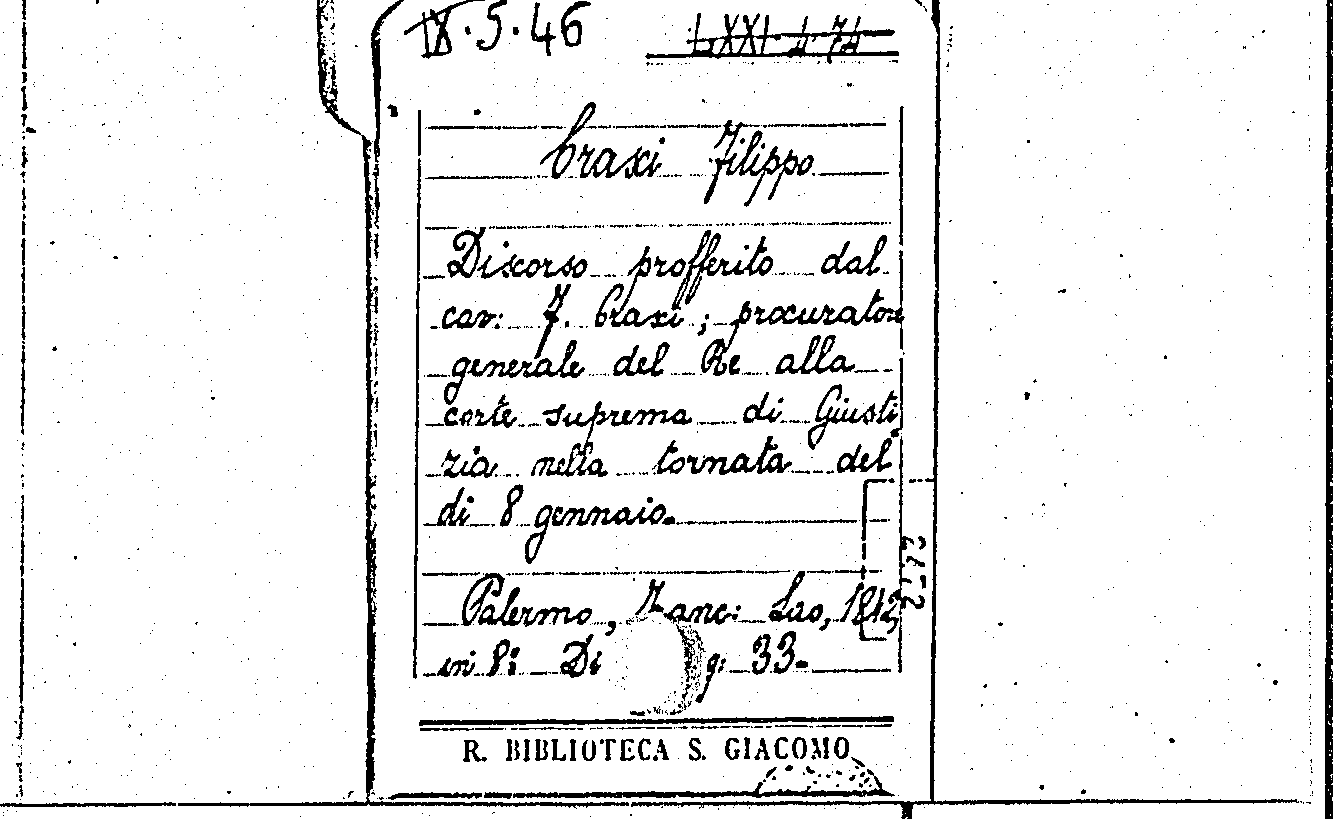 IX.5.46 LXXI.4.74
Craxi Filippo
Discorso profferito dal
cav: F. Craxi; procuratore
generale del Re alla
corte suprema di Giusti
zia nella tornata del
di 8 gennaio.
Palermo, Franc: Lao, 1842,
in 8: Di g: 33.
R. BIBLIOTECA S. GIACOMO